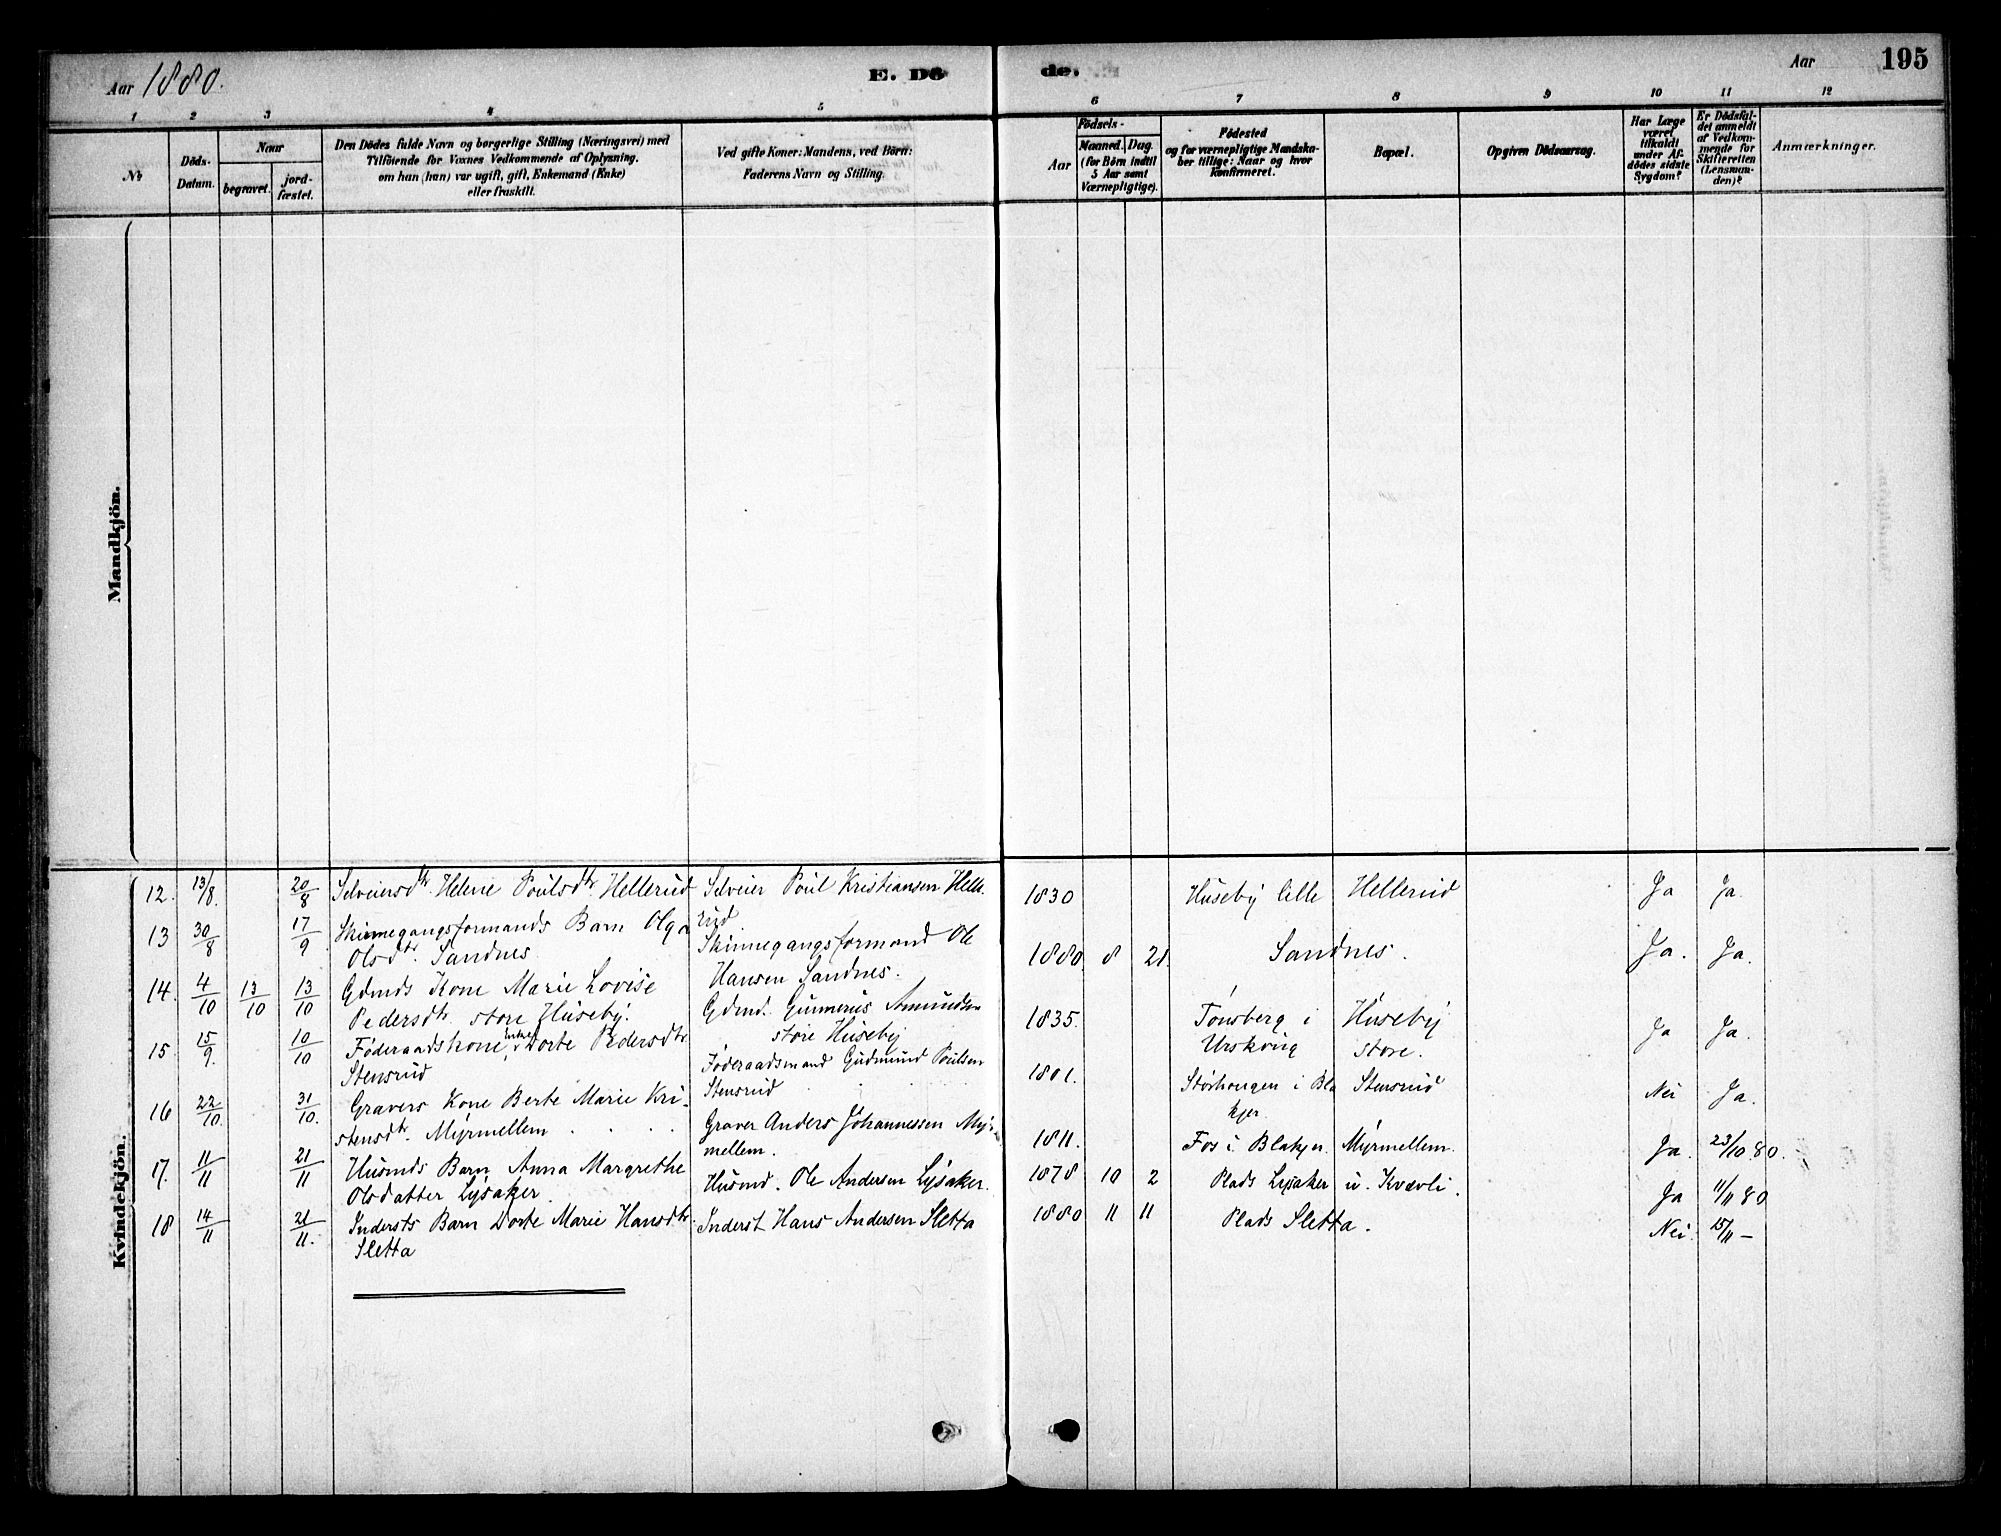 Aar 1880.
E. Dö
de.
Aar
195
1 2 3 4 5 6 7 8 9 10 11 12
№
Döds-
Datum.
Naar
begravet.
jord-
fæstet.
Den Dödes fulde Navn og borgerlige Stilling (Næringsvei) med
Tilföiende for Voxnes Vedkommende af Oplysning,
om han (hun) var ugift, gift, Enkemand (Enke)
eller fraskilt.
Ved gifte Koner: Mandens, ved Börn:
Faderens Navn og Stilling.
Födsels-
Aar
Maaned. Dag.
(for Börn indtil
5 Aar samt
Værnepligtige).
Födested
og for værnepligtige Mandska-
ber tillige: Naar og hvor
konfirmeret.
Bopæl.
Opgiven Dödsaarsag.
Har Læge
været
tilkaldt
under Af-
dödes sidste
Sygdom?
Er Dödsfal-
det anmeldt
af Vedkom-
mende for
Skifteretten
(Lensman-
den)?
Anmærkninger.
Mandkjön.
Kvindekjön.
12. 13/8. 20/8 Selveiersdtr. Helene Poulsdtr Hellerud Selveier Poul Kristiansen Helle- 1830 Huseby lille Hellerud Ja Ja.
rud.
13 30/8 17/9 Skinnegangsformands Barn Olga Skinnegangsformand Ole 1880. 8 21. Sandnes. Ja. Ja.
Olsdtr. Sandnes Hansen Sandnes.
14. 4/10 13/10 13/10 Gdmds Kone Marie Lovise Gdmd. Gunnerus Amundsen 1835. Tonsberg i Huseby Ja Ja.
Pedersdtr. store Huseby. store Huseby Urskoug store.
15 15/9. 10/10 Føderaadskone, Enke Dorte Pedersdtr Føderaadsmand Gudmund Poulsen 1801. i Bla Stensrud Nei Ja.
Stensrud Stensrud kjer.
16 22/10. 31/10. Gravers Kone Berte Marie Kri- Graver Anders Johannessen Myr- 1811. Fos i Blakjer Myrmellem. Ja. 23/10 80.
stensdtr. Myrmellem mellem.
17. 11/11 21/11 Husmds Barn Anna Margrethe Husmd. Ole Andersen Lysaker. 1878 10 2 Plads Lysaker u. Kvævli. Ja 11/11 80
Olsdatter Lysaker.
18 14/11 21/11. Indersts Barn Dorte Marie Hansdtr. Inderst Hans Andersen Sletta 1880 11 11 Plads Sletta. Nei. 15/11 –
Sletta